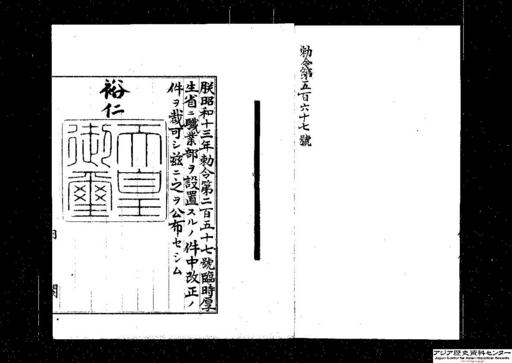 勅令第五百六十七號
朕昭和十三年勅令第二百五十七號臨時厚
生省ニ職業部ヲ設置スルノ件中改正ノ
件ヲ裁可シ茲ニ之ヲ公布セシム
裕仁
天皇
御璽
アジア歴史資料センター
Japan Center for Asian Historical Records